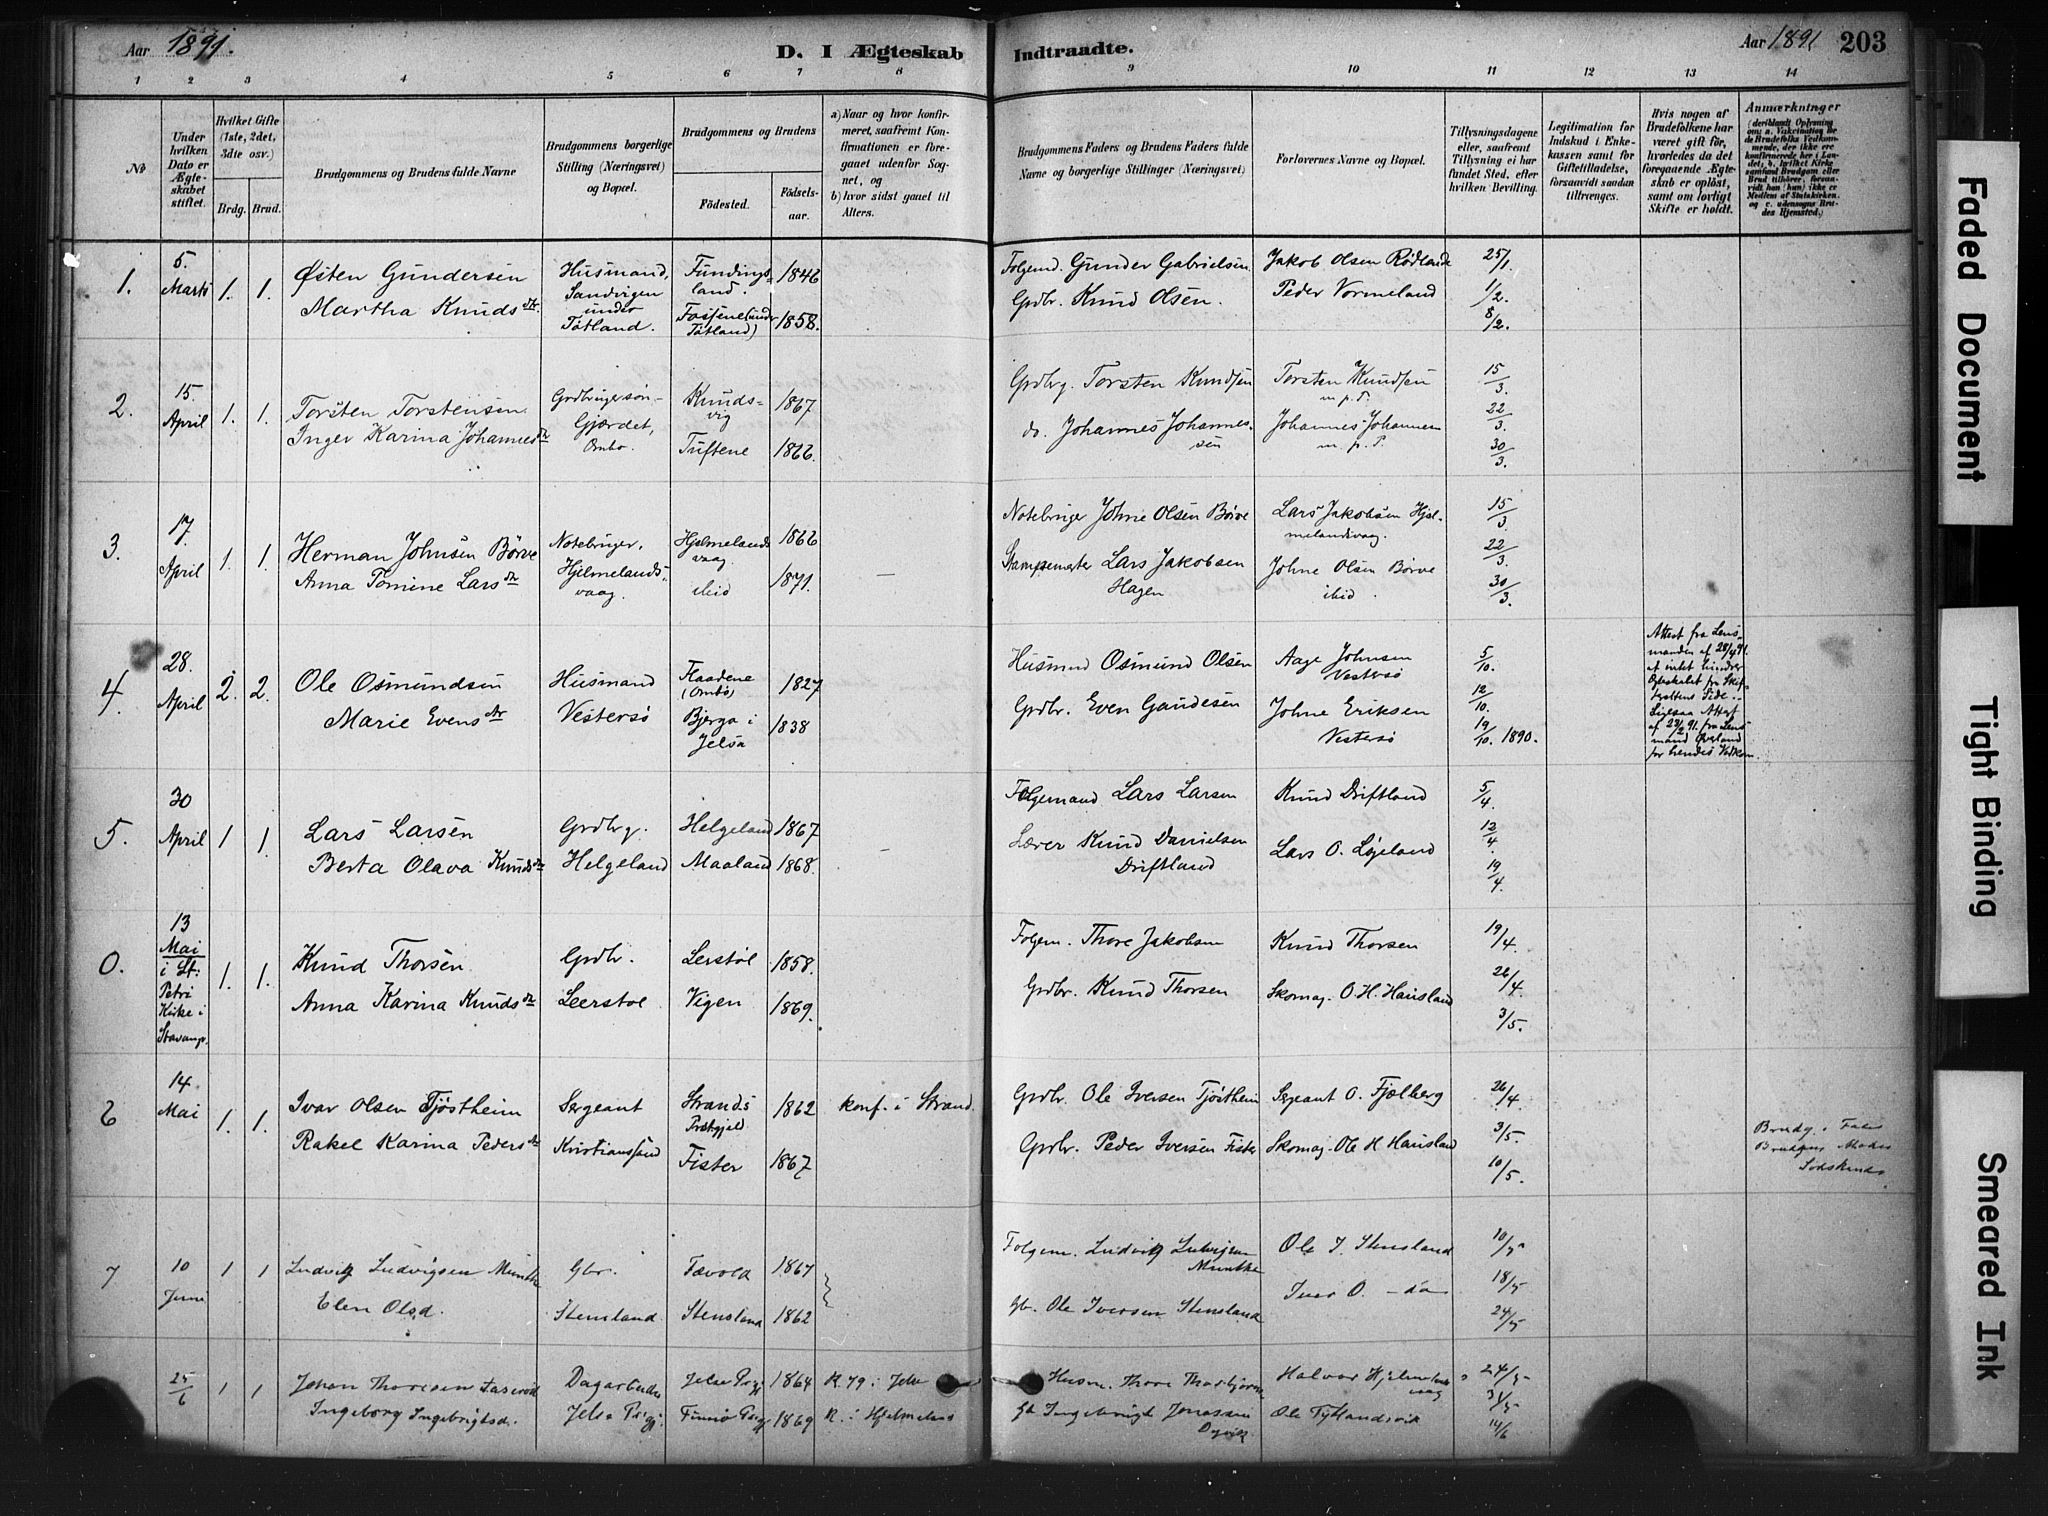 Aar 1891.
D. I Ægteskab Indtraadte.
Aar 1891 203
1 2 3 4 5 6 7 8 9 10 11 12 13 14
No
Under hvilken Dato er Ægteskabet stiftet.
Hvilket Gifte (1ste, 2det, 3dte osv.)
Brdg. Brud.
Brudgommens og Brudens fulde Navne
Brudgommens borgerlige Stilling (Næringsvei) og Bopæl.
Brudgommens og Brudens
Födested. Födselsaar.
a) Naar og hvor konfirmeret, saafremt Konfirmationen er foregaaet udenfor Sognet, og
b) hvor sidst gaaet til Alters.
Brudgommens Faders og Brudens Faders fulde Navne og borgerlige Stillinger (Næringsvei)
Forlovernes Navne og Bopæl.
Tillysningsdagene eller, saafremt Tillysning ei har fundet Sted, efter hvilken Bevilling.
Legitimation for Indskud i Enkekassen samt for Giftetilladelse, forsaavidt saadan tiltrænges.
Hvis nogen af Brudefolkene har været gift för, hvorledes da det foregaaende Ægteskab er oplöst, samt om lovligt Skifte er holdt.
Anmærkninger
1. 5. Marts 1. 1.
Østen Gundersen
Martha Knudsdtr.
Husmand, Sandvigen under Tøtland.
Fundingsland. 1846
Fossene (under Tøtland) 1858.
Folgemd. Gunder Gabrielsen
Grdbr. Knud Olsen.
Jakob Olsen Rødland
Peder Vormeland
25/1. 1/2. 8/2.
2. 15. April 1. 1.
Torsten Torstensen
Inger Karina Johannesdtr
Grdbrugersøn Gjærdet, Ombo.
Knudsvig 1867
Tuftene 1866.
Grdbrg. Torsten Knudsen
do. Johannes Johannessen
Torsten Knudsen m. p. P.
Johannes Johannessen m. p. P.
15/3. 22/3. 30/3.
3. 17. April 1. 1.
Herman Johnsen Börve
Anna Tomine Larsdtr
Notebruger, Hjelmelandsvaag.
Hjelmelandsvaag 1866
ibid 1871.
Notebruger Johne Olsen Børve
Stampemester Lars Jakobsen Hagen
Lars Jakobsen Hjelmelandsvaag.
Johne Olsen Børve ibid.
15/3. 22/3. 30/3.
4. 28. April 2. 2.
Ole Osmundsen
Marie Evensdtr
Husmand Vestersø
Flaadene (Ombø) 1827
Bjerga i Jelsa 1838
Husmnd Osmund Olsen
Grdbr. Even Gaudesen
Aage Johnsen Vestersø
Johne Eriksen Vestersø
5/10. 12/10. 19/10. 1890.
Attest fra Lensmanden af 28/4 91. at intet hindrer Egteskabet fra Skifterettens Side. Ligesaa Attest af 23/2 91. fra Lensmand Øverland for hendes Vedkom.
5. 30 April 1 1.
Lars Larsen
Berta Olava Knudsdtr
Grdbrg. Helgeland
Helgeland 1867
Maaland 1868.
Folgemand Lars Larsen
Lærer Knud Danielsen Driftland
Knud Driftland
Lars O. Løjeland
5/4. 12/4. 19/4.
0. 13 Mai i St: Petri Kirke i Stavangr. 1. 1.
Knud Thorsen
Anna Karina Knudsdtr
Grdbr. Leerstøl
Lerstøl 1858.
Vigen 1869.
Folgem. Thore Jakobsen
Grdbr. Knud Thorsen
Knud Thorsen
Skomag. O. H. Hausland
19/4. 26/4. 3/5.
6 14 Mai 1. 1.
Ivar Olsen Tjøstheim
Rakel Karina Pedersdtr
Sergeant Kristianssand
Strands Præstgjeld 1862
Fister 1867
konf. i Strand
Grdbr. Ole Iversen Tjøstheim
Grdbr. Peder Iversen Fister
Sergeant O. Fjelberg
Skomag. Ole H. Hausland
26/4. 3/5. 10/5.
Brudg. Fader Brudens Moder Sødskende
7 10 Juni 1 1
Ludvig Ludvigsen Munthe
Elen Olsd.
Gbr. Stensland.
Tævold 1867
Stensland 1862
Folgem. Ludvig Ludvigsen Munthe
Gb. Ole Iversen Stensland
Ole I. Stensland
Iver O. - do
10/5 18/5 24/5
25/6 1 1
Johan Thoresen
Ingeborg Ingebrigtsd.
Dagarbeider Jelse Prgj.
Jelse Prgj 1864
Finnø Prgj 1869
K. 79 i Jelse
K. i Hjelmeland
Husm. Thore Thorbjørns
Gb Ingebrigt Jonassen Dyvik
Halvor Hjelmelandsvaag
Ole Tytlandsvik
24/5 31/5 14/6
Faded Document
Tight Binding
Smeared Ink